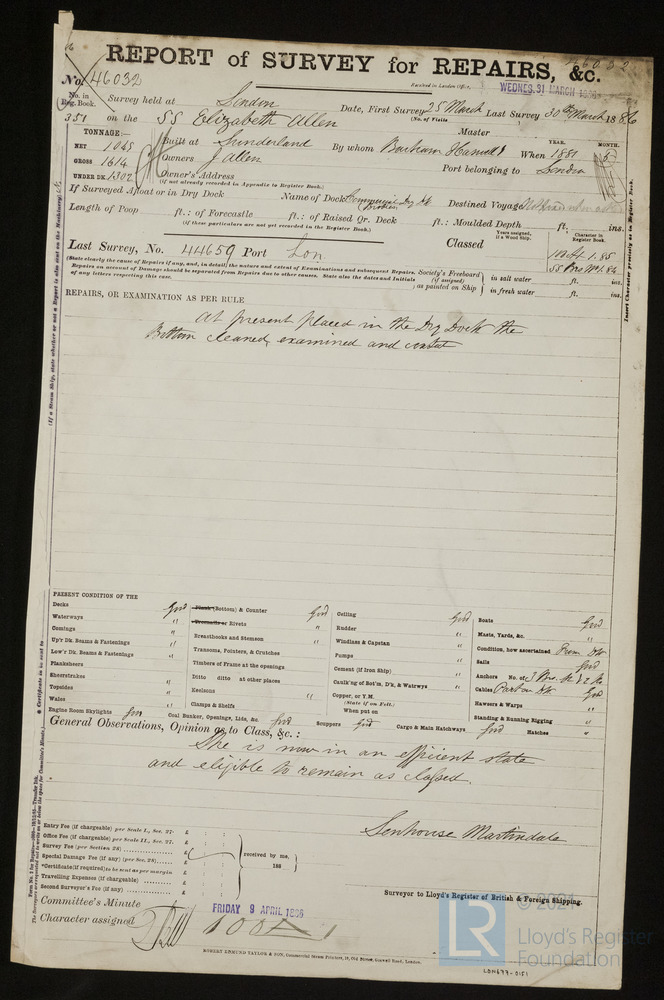 REPORT of SURVEY for REPAIRS, &c.
46032
No. 46032
Received in London Office,
WEDNES. 31 MARCH 1886
No. in Reg. Book.
Survey held at London
Date, First Survey 25 March Last Survey 30th March 1886
(No. of Visits
351 on the SS Elizabeth Allen
Master
TONNAGE:—
NET 1045
GROSS 1614
UNDER DK. 1302
Built at Sunderland
By whom
When 1881
YEAR. MONTH.
5
Owners J Allen
Port belonging to London
Owner's Address
(if not already recorded in Appendix to Register Book.)
If Surveyed Afloat or in Dry Dock
Name of Dock Commercial Dry Dk
Destined Voyage
Length of Poop ft.: of Forecastle ft.: of Raised Qr. Deck ft.: Moulded Depth ft. ins.
(if these particulars are not yet recorded in the Register Book.)
Last Survey, No. 44659 Port Lon
Years assigned, if a Wood Ship.
Classed
Character in Register Book.
100A1 1.85
(State clearly the cause of Repairs if any, and, in detail, the nature and extent of Examinations and subsequent Repairs.
Repairs on account of Damage should be separated from Repairs due to other causes. State also the dates and Initials
of any letters respecting this case.
Society's Freeboard (if assigned) as painted on Ship
in salt water ft. ins.
in fresh water ft. ins.
REPAIRS, OR EXAMINATION AS PER RULE
At present placed in the Dry Dock the
Bottom cleaned, examined and coated
PRESENT CONDITION OF THE
Decks Good
Waterways "
Comings "
Up'r Dk. Beams & Fastenings "
Low'r Dk. Beams & Fastenings "
Planksheers
Sheerstrakes
Topsides
Wales
Engine Room Skylights Good
Plank (Bottom) & Counter Good
Treenails or Rivets "
Breasthooks and Stemson "
Transoms, Pointers, & Crutches
Timbers of Frame at the openings
Ditto ditto at other places
Keelsons "
Clamps & Shelfs
Coal Bunker, Openings, Lids, &c. Good
Ceiling Good
Rudder "
Windlass & Capstan "
Pumps "
Cement (if Iron Ship) "
Caulk'ng of Bot'm, D'k, & Waterwys "
Copper, or Y.M.
(State if on Felt.)
When put on
Scuppers Good
Cargo & Main Hatchways Good
Boats Good
Masts, Yards, &c. "
Condition, how ascertained From Dk
Sails Good
Anchors No. of
Cables Part on Dk Good
Hawsers & Warps "
Standing & Running Rigging "
Hatches "
General Observations, Opinion as to Class, &c.:
She is now in an efficient state
and eligible to remain as classed.
Senhouse Martindale
Surveyor to Lloyd's Register of British & Foreign Shipping.
Entry Fee (if chargeable) per Scale I., Sec. 27. £
Office Fee (if chargeable) per Scale II., Sec. 27. £
Survey Fee (per Section 28) £
Special Damage Fee (if any) (per Sec. 28) £
*Certificate (if required) to be sent as per margin £
Travelling Expenses (if chargeable) £
Second Surveyor's Fee (if any) £
received by me,
188
Committee's Minute
FRIDAY 9 APRIL 1886
Character assigned 100A1
ROBERT EDMUND TAYLOR & SON, Commercial Steam Printers, 19, Old Street, Goswell Road, London.
(If a Steam Ship, state whether or not a Report is also sent on the Machinery.)
Insert Character precisely as in Register Book.
LR
© 2021
Lloyd's Register
Foundation
LON677-0151